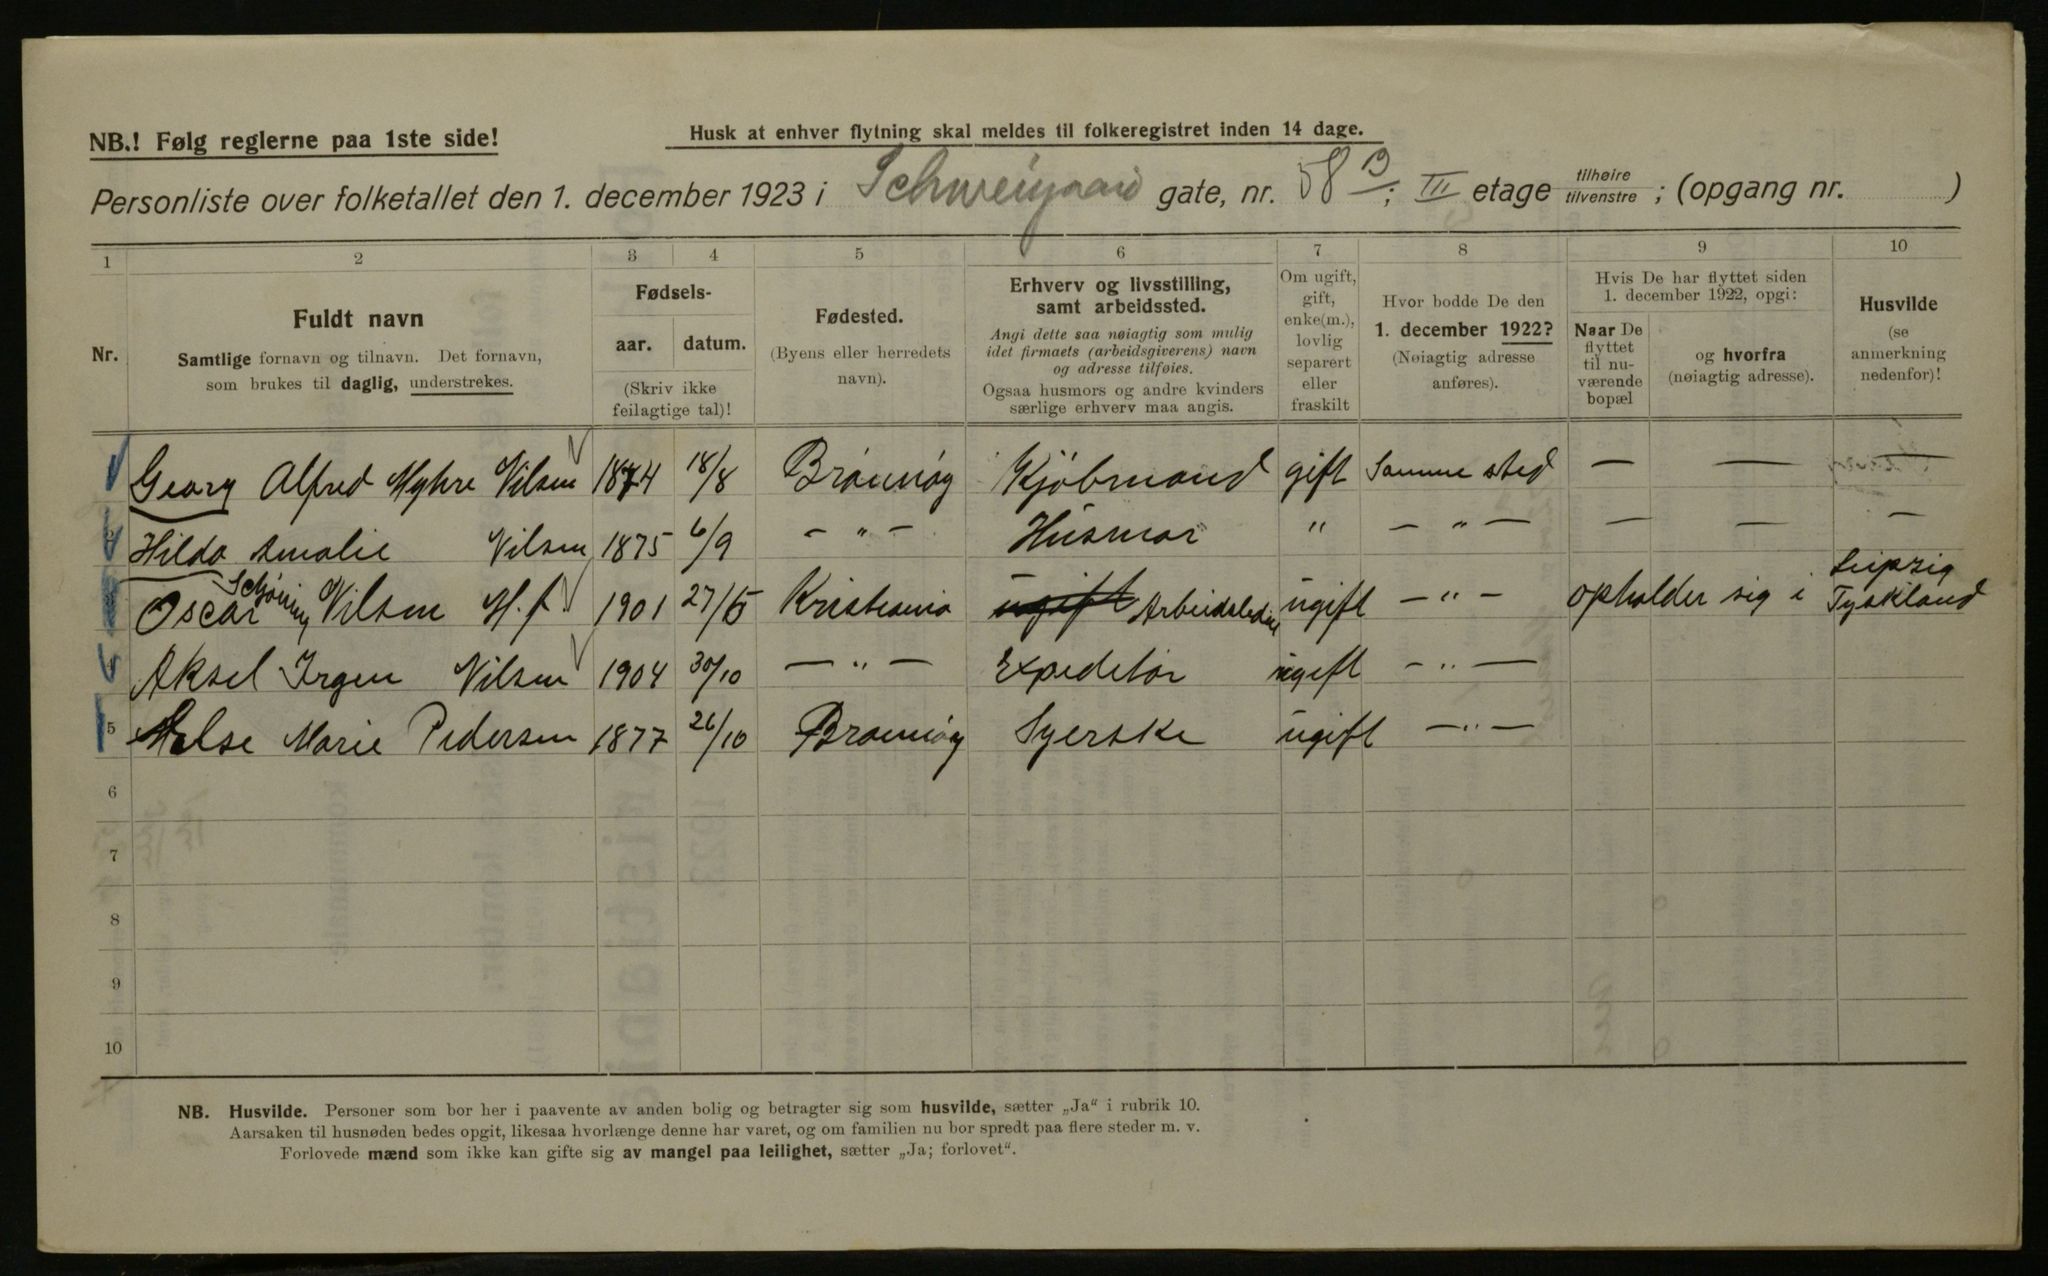 NB.! Følg reglerne paa 1ste side!
Husk at enhver flytning skal meldes til folkeregistret inden 14 dage.
Personliste over folketallet den 1. december 1923 i Schweigaard gate, nr. 58 B; III etage tilhøire tilvenstre ; (opgang nr. )
1 2 3 4 5 6 7 8 9 10
Nr.
Fuldt navn
Samtlige fornavn og tilnavn. Det fornavn,
som brukes til daglig, understrekes.
Fødsels-
aar. datum.
(Skriv ikke
feilagtige tal)!
Fødested.
(Byens eller herredets
navn).
Erhverv og livsstilling,
samt arbeidssted.
Angi dette saa nøiagtig som mulig
idet firmaets (arbeidsgiverens) navn
og adresse tilføies.
Ogsaa husmors og andre kvinders
særlige erhverv maa angis.
Om ugift,
gift,
enke(m.),
lovlig
separert
eller
fraskilt
Hvor bodde De den
1. december 1922?
(Nøiagtig adresse
anføres).
Hvis De har flyttet siden
1. december 1922, opgi:
Naar De
flyttet
til nu-
værende
bopæl
og hvorfra
(nøiagtig adresse).
Husvilde
(se
anmerkning
nedenfor)!
Georg Alfred Myhre Nilsen 1874 18/8 Brønnøy Kjøbmand gift Samme sted — — —
Hilda Amalie Nilsen 1875 6/9 — " — Husmor " — " — — — —
Oscar Schøning Nilsen M. f 1901 27/5 Kristiania ugift Arbeidsleder ugift — " — opholder sig i Leipzig Tyskland
4 Aksel Irgen Nilsen 1904 30/10 — " — Expeditør ugift — " —
5 Else Marie Pedersen 1877 26/10 Brønnøy Syerske ugift — " —
6
7
8
9
10
NB. Husvilde. Personer som bor her i paavente av anden bolig og betragter sig som husvilde, sætter „Ja" i rubrik 10.
Aarsaken til husnøden bedes opgit, likesaa hvorlænge denne har varet, og om familien nu bor spredt paa flere steder m. v.
Forlovede mænd som ikke kan gifte sig av mangel paa leilighet, sætter „Ja; forlovet".